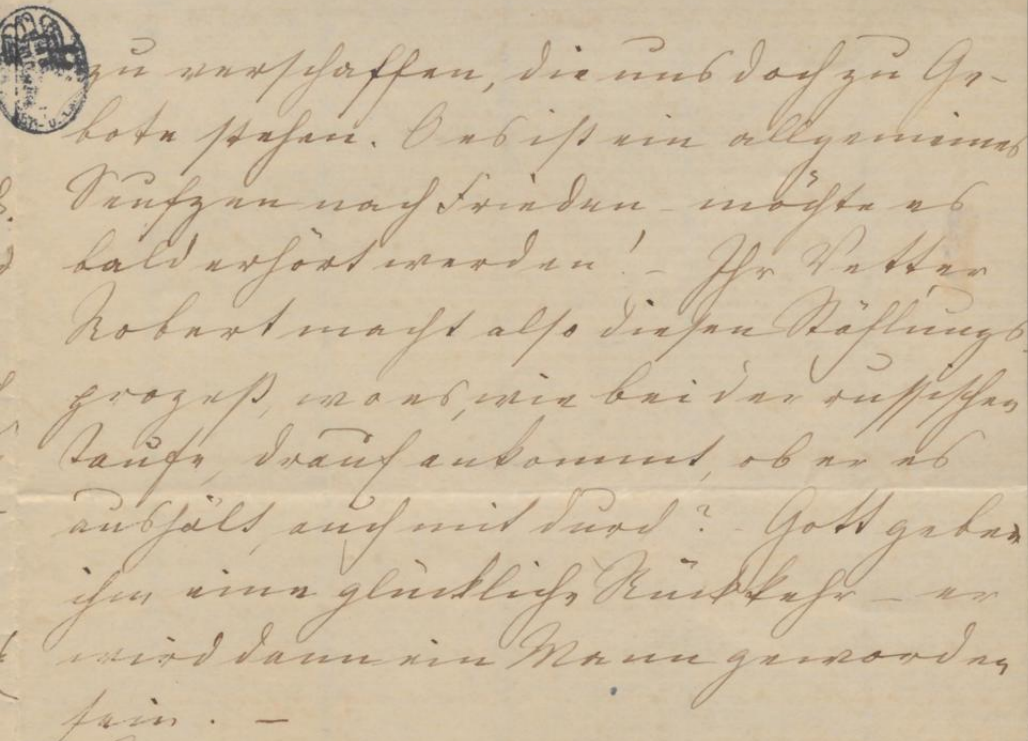 zu verschaffen, die uns doch zu Ge-
bote stehen. O es ist ein allgemeines
Seufzen nach Frieden – möchte es
bald erhört werden! – Ihr Vetter
Robert macht also diesen Stählungs-
prozeß, wo es, wie bei der russischen
Taufe, drauf ankommt, ob er es
aushält, auch mit durch? – Gott gebe
ihm eine glückliche Rückkehr – er
wird dann ein Mann geworden
sein. –